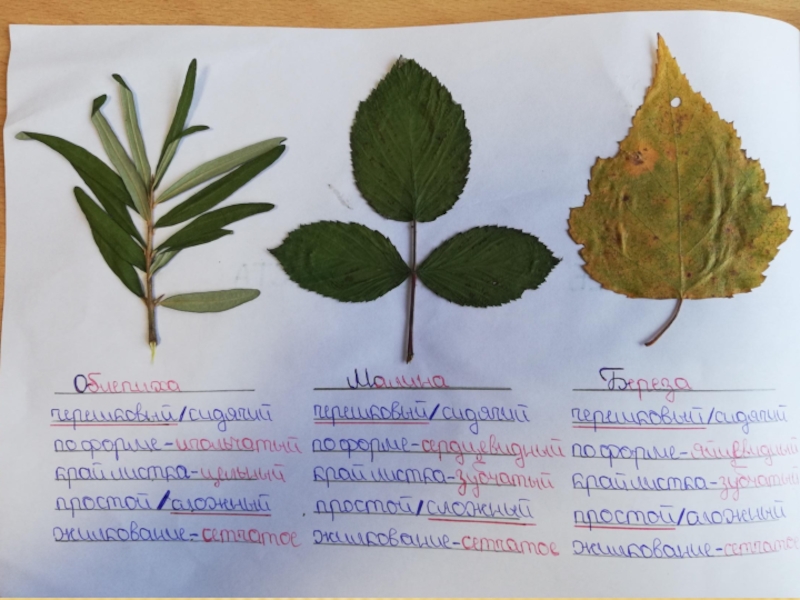 Облепиха
черешковый/сидячий
по форме-игольчатый
край листка-цельный
простой/сложный
жилкование-сетчатое
Малина
черешковый/сидячий
по форме-сердцевидный
край листка-зубчатый
простой/сложный
жилкование-сетчатое
Береза
черешковый/сидячий
по форме-яйцевидный
край листка-зубчатый
простой/сложный
жилкование-сетчатое